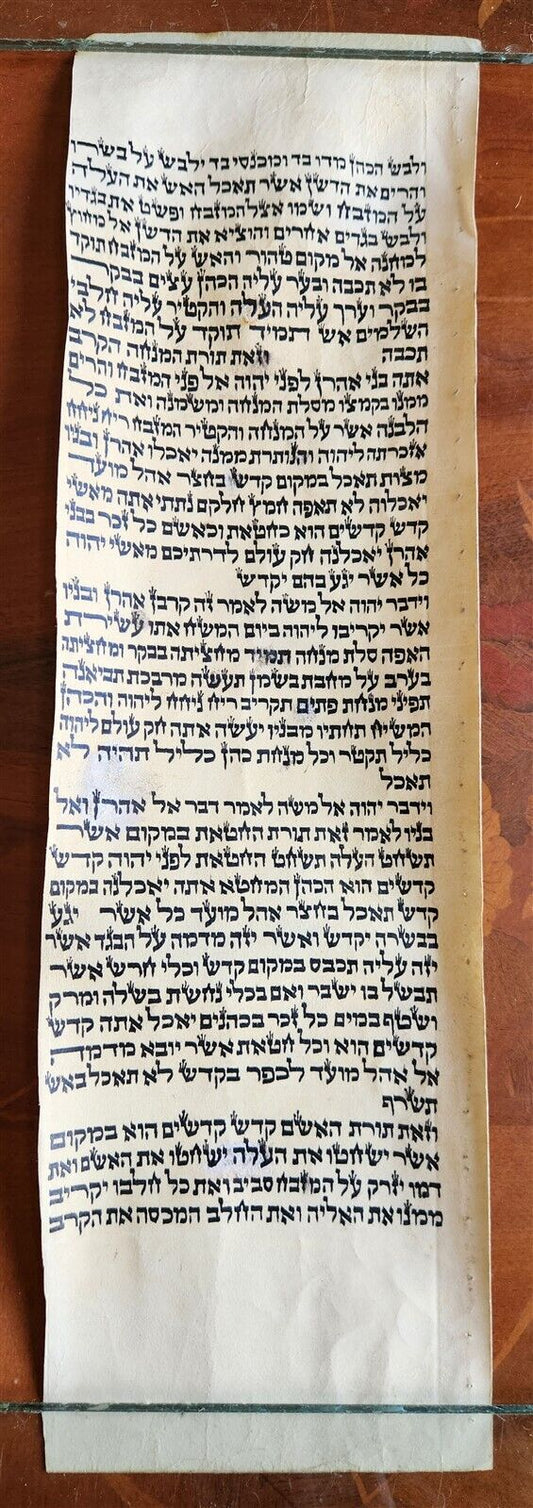 ולבש הכהן מדו בד ומכנסי בד ילבש על בשרו
והרים את הדשן אשר תאכל האש את העלה
על המזבח ושמו אצל המזבח ופשט את בגדיו
ולבש בגדים אחרים והוציא את הדשן אל מחוץ
למחנה אל מקום טהור והאש על המזבח תוקד
בו לא תכבה ובער עליה הכהן עצים בבקר
בבקר וערך עליה העלה והקטיר עליה חלבי
השלמים אש תמיד תוקד על המזבח לא
תכבה וזאת תורת המנחה הקרב
אתה בני אהרן לפני יהוה אל פני המזבח והרים
ממנו בקמצו מסלת המנחה ומשמנה ואת כל
הלבנה אשר על המנחה והקטיר המזבח ריח ניחח
אזכרתה ליהוה והנותרת ממנה יאכלו אהרן ובניו
מצות תאכל במקום קדש בחצר אהל מועד
יאכלוה לא תאפה חמץ חלקם נתתי אתה מאשי
קדש קדשים הוא כחטאת וכאשם כל זכר בבני
אהרן יאכלנה חק עולם לדרתיכם מאשי יהוה
כל אשר יגע בהם יקדש
וידבר יהוה אל משה לאמר זה קרבן אהרן ובניו
אשר יקריבו ליהוה ביום המשח אתו עשירת
האפה סלת מנחה תמיד מחציתה בבקר ומחציתה
בערב על מחבת בשמן תעשה מרבכת תביאנה
תפיני מנחת פתים תקריב ריח ניחח ליהוה והכהן
המשיח תחתיו מבניו יעשה אתה חק עולם ליהוה
כליל תקטר וכל מנחת כהן כליל תהיה לא
תאכל
וידבר יהוה אל משה לאמר דבר אל אהרן ואל
בניו לאמר זאת תורת החטאת במקום אשר
תשחט העלה תשחט החטאת לפני יהוה קדש
קדשים הוא הכהן המחטא אתה יאכלנה במקום
קדש תאכל בחצר אהל מועד כל אשר יגע
בבשרה יקדש ואשר יזה מדמה על הבגד אשר
יזה עליה תכבס במקום קדש וכלי חרש אשר
תבשל בו ישבר ואם בכלי נחשת בשלה ומרק
ושטף במים כל זכר בכהנים יאכל אתה קדש
קדשים הוא וכל חטאת אשר יובא מדמה
אל אהל מועד לכפר בקדש לא תאכל באש
תשרף
וזאת תורת האשם קדש קדשים הוא במקום
אשר ישחטו את העלה ישחטו את האשם ואת
דמו יזרק על המזבח סביב ואת כל חלבו יקריב
ממנו את האליה ואת החלב המכסה את הקרב